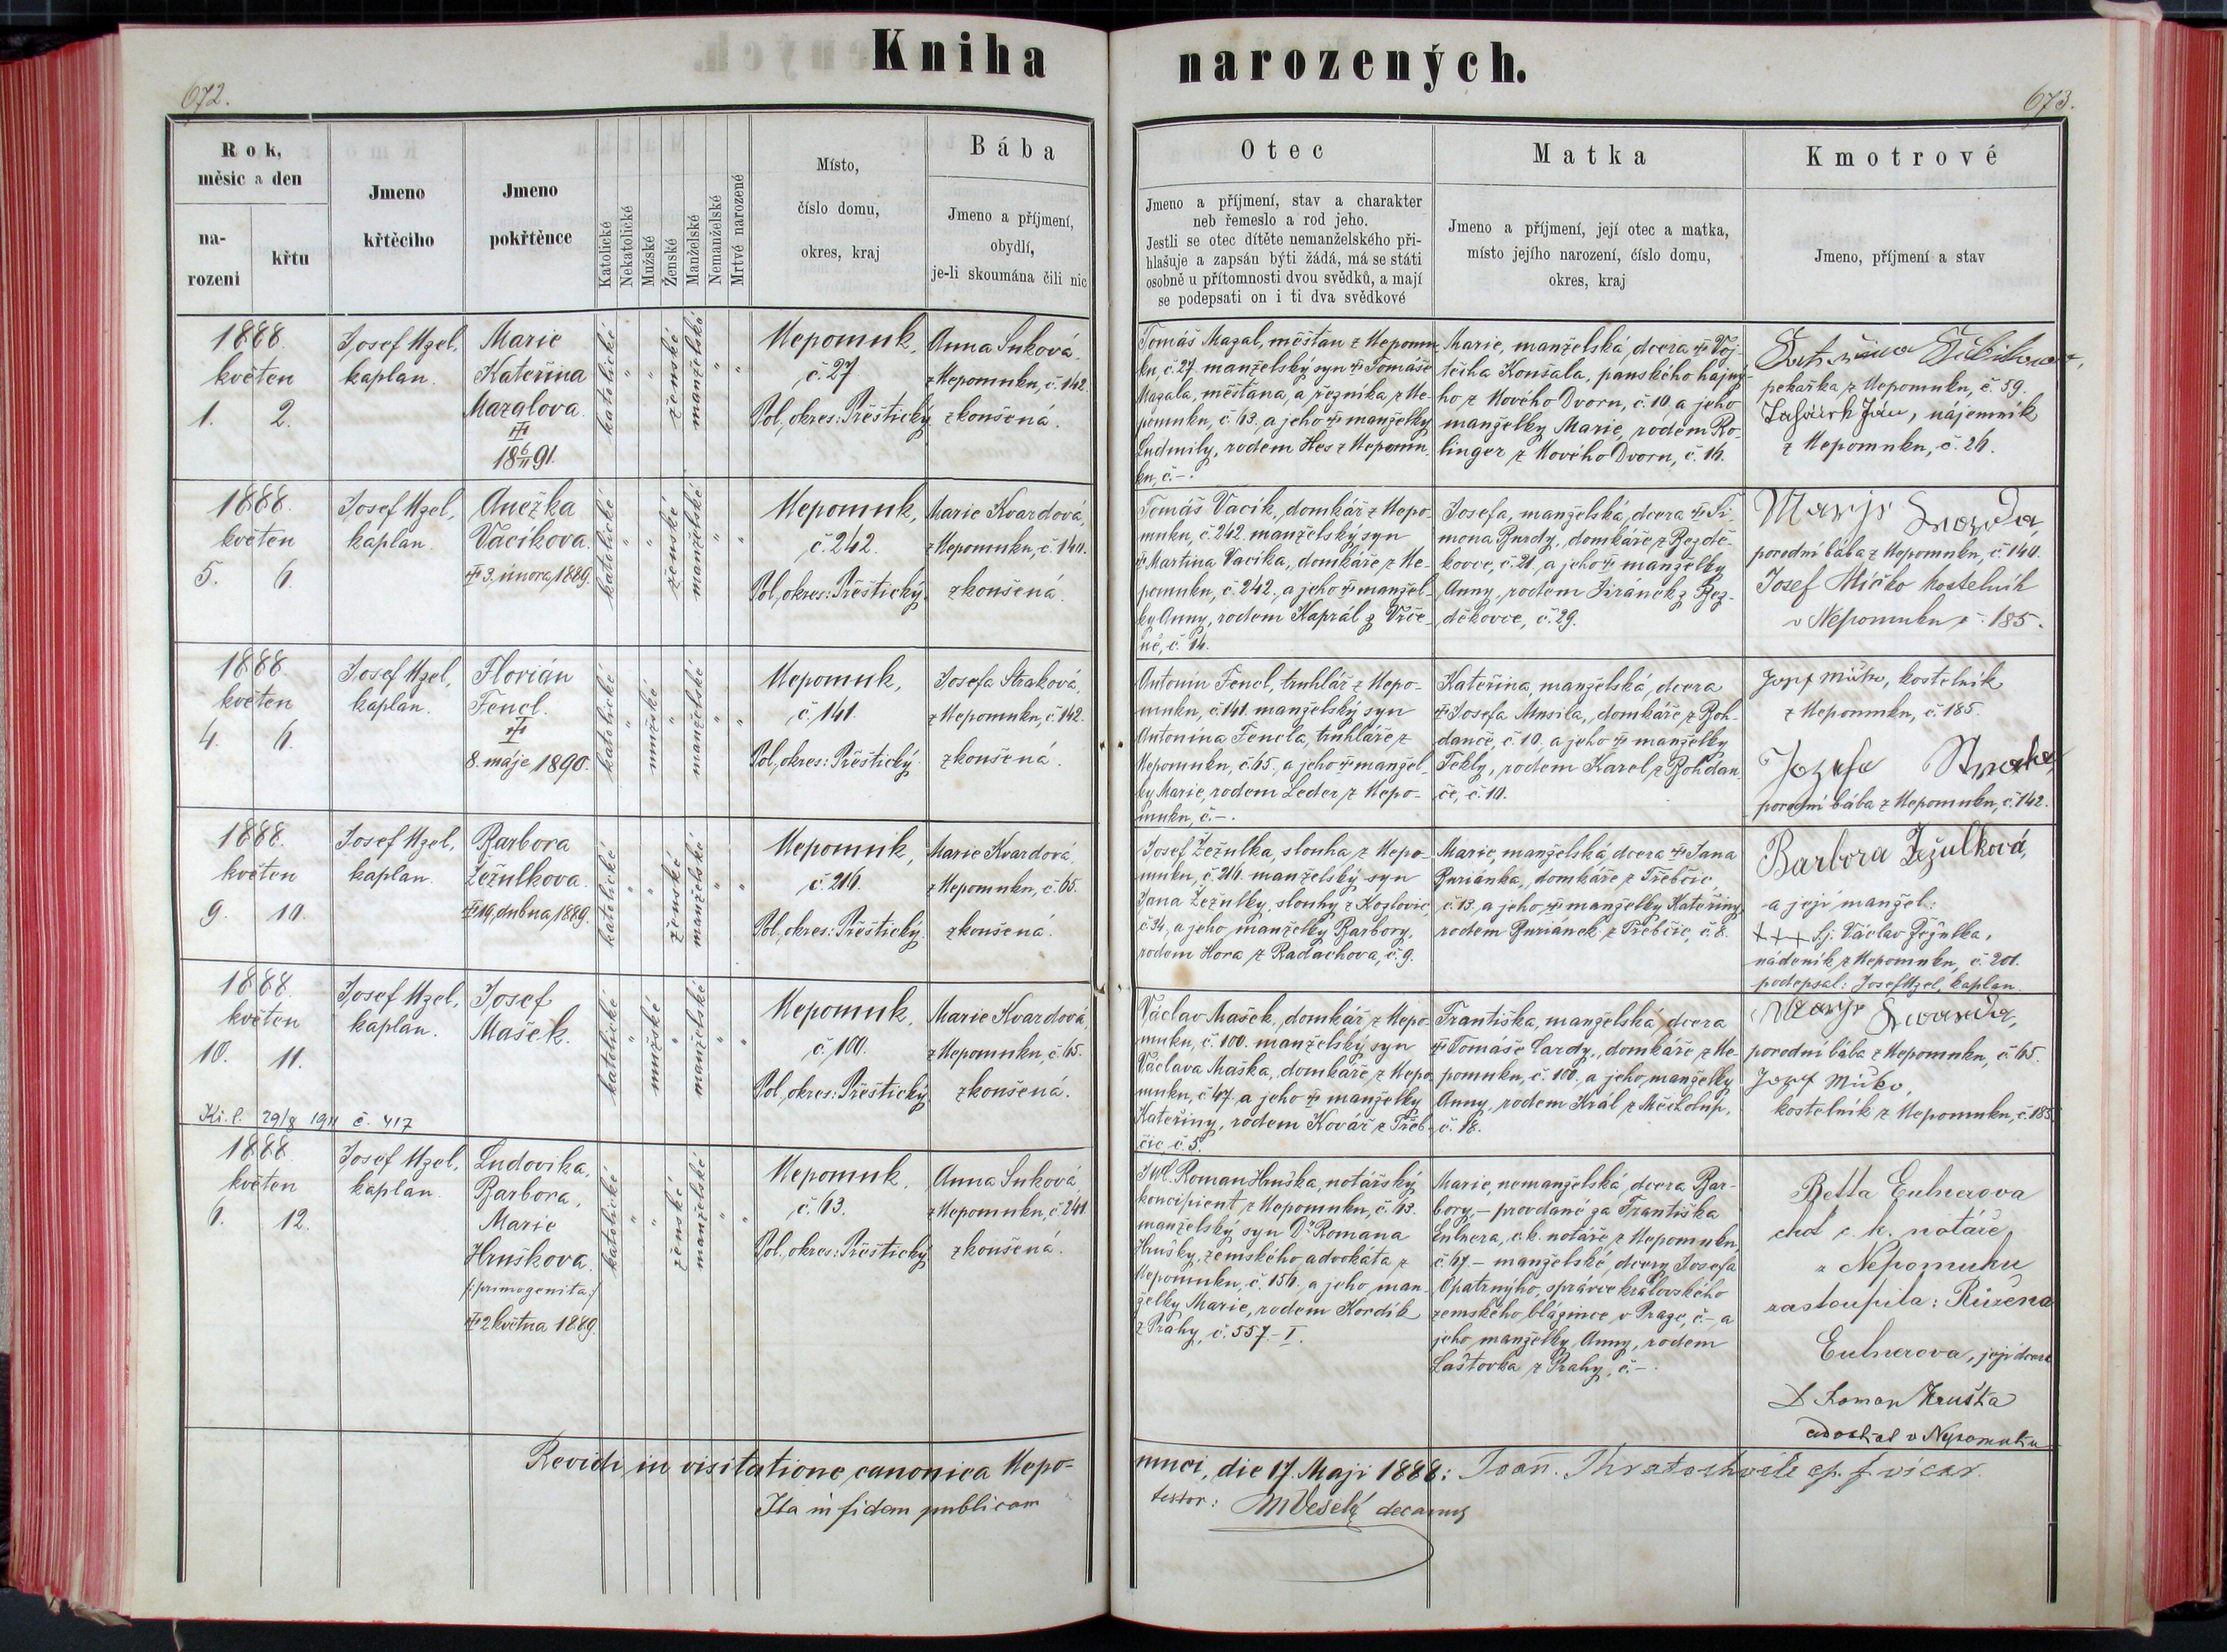 Kniha
narozených.
672.
673.
Rok,
měsíc a den
na-
rozeni
křtu
Jmeno
křtěcího
Jmeno
pokřtěnce
Katolické
Nekatolické
Mužské
Ženské
Manželské
Nemanželské
Mrtvé narozené
Místo,
číslo domu,
okres, kraj
Bába
Jmeno a příjmení,
obydlí,
je-li skoumána čili nic
Otec
Jmeno a příjmení, stav a charakter
neb řemeslo a rod jeho.
Jestli se otec dítěte nemanželského při-
hlašuje a zapsán býti žádá, má se státi
osobně u přítomnosti dvou svědků, a mají
se podepsati on i ti dva svědkové
Matka
Jmeno a příjmení, její otec a matka,
místo jejího narození, číslo domu,
okres, kraj
Kmotrové
Jmeno, příjmení a stav
1888.
květen
1. 2.
Josef Uzel,
kaplan.
Marie
Kateřina
Mazalova
18 6/11 91.
katolické
"
"
ženské
manželské
"
"
Nepomuk,
č. 27
Pol. okres: Přeštický
Anna Suková,
z Nepomuku, č. 142.
zkoušená.
Tomáš Mazal, měšťan z Nepomu-
ku, č. 27. manželský syn Tomáše
Mazala, měšťana, a řezníka z Ne-
pomuku, č. 63. a jeho manželky
Ludmily, rodem Hes z Nepomu-
ku, č. -.
Marie, manželská dcera Voj-
těcha Konšala, panského hajný-
ho z Nového Dvoru, č. 10. a jeho
manželky Marie, rodem Ro-
linger z Nového Dvoru, č. 16.
pekařka z Nepomuku, č. 59.
Jan, nájemník
z Nepomuku, č. 26.
1888.
květen
5. 6.
Josef Uzel,
kaplan.
Anežka
Vacíkova.
3. února 1889.
katolické
"
"
ženské
manželské
"
"
Nepomuk,
č. 242.
Pol. okres: Přeštický.
Marie Kvardová,
z Nepomuku, č. 140.
zkoušená.
Tomáš Vacík, domkář z Nepo-
muku, č. 242. manželský syn
Martina Vacíka, domkáře z Ne-
pomuku, č. 242. a jeho manžel-
ky Anny, rodem Kaprál z Vrče-
ně, č. 14.
Josefa, manželská, dcera Ši-
mona Burdy, domkáře z Bezdě-
kovce, č. 21, a jeho manželky
Anny, rodem Jiránek z Bez-
děkovce, č. 29.
Maryje
porodní bába z Nepomuku, č. 140.
Josef Mičko kostelník
v Nepomuku č. 185.
1888.
květen
4. 6.
Josef Uzel,
kaplan.
Florián
Fencl.
8. máje 1890.
katolické
"
mužské
"
manželské
"
"
Nepomuk,
č. 141.
Pol. okres: Přeštický.
Josefa Straková,
z Nepomuku, č. 142.
zkoušená.
Antonín Fencl, truhlář z Nepo-
muku, č. 141. manželský syn
Antonína Fencla, truhláře z
Nepomuku, č. 65, a jeho manžel-
ky Marie, rodem Leder, z Nepo-
muku, č. -.
Kateřina, manželská, dcera
Josefa Musila, domkáře z Boh-
danče, č. 10. a jeho manželky
Tekly, rodem Karel, z Bohdan-
če, č. 10.
Jozef Mičko, kostelník
z Nepomuku, č. 185.
Jozefa Straka,
porodní bába z Nepomuku, č. 142.
1888.
květen
9. 10.
Josef Uzel,
kaplan.
Barbora
Žežulkova.
19. dubna 1889.
katolické
"
"
ženské
manželské
"
"
Nepomuk,
č. 216.
Pol. okres: Přeštický.
Marie Kvardová,
z Nepomuku, č. 65.
zkoušená.
Josef Žežulka, slouha z Nepo-
muku, č. 216. manželský syn
Jana Žežulky, slouhy z Kozlovic,
č. 34, a jeho manželky Barbory,
rodem Hora, z Radachova, č. 9.
Marie, manželská, dcera Jana
Buriánka, domkáře z Třebčic,
č. 13. a jeho manželky Kateřiny
rodem Buriánek z Třebčic, č. 8.
Barbora Žežulková,
a její manžel:
+++ tj. Václav Žežulka,
nádeník z Nepomuku, č. 201.
podepsal: Josef Uzel, kaplan.
1888.
květen
10. 11.
Josef Uzel,
kaplan.
Josef
Mašek.
katolické
"
mužské
"
manželské
"
"
Nepomuk,
č. 100.
Pol. okres: Přeštický
Marie Kvardová,
z Nepomuku, č. 65.
zkoušená.
Václav Mašek, domkář z Nepo-
muku, č. 100. manželský syn
Václava Maška, domkáře z Nepo-
muku, č. 47. a jeho manželky
Kateřiny, rodem Kovář z Třeb-
čic č. 5.
Františka, manželská, dcera
Tomáše Cardy, domkáře z Ne-
pomuku, č. 100. a jeho manželky
Anny, rodem Král z Měcholup,
č. 18.
Maryje
porodní bába z Nepomuku, č. 65.
Jozef Mičko,
kostelník z Nepomuku, č. 185
Kř. l. 29/8 1911 č. 417
1888.
květen
6. 12.
Josef Uzel,
kaplan.
Ludovika,
Barbora,
Marie
Hruškova.
/:primogenita:/
2. května 1889.
katolické
"
"
ženské
manželské
"
"
Nepomuk,
č. 63.
Pol. okres: Přeštický
Anna Suková,
z Nepomuku, č. 241.
zkoušená.
Roman Hruška, notářský
koncipient z Nepomuku, č. 63.
manželský syn Dra Romana
Hrušky, zemského advokáta z
Nepomuku, č. 156, a jeho man-
želky Marie, rodem Kordík
z Prahy, č. 557-I.
Marie, nemanželská, dcera Bar-
bory, - provdané za Františka
Eulnera, c. k. notáře z Nepomuku,
č. 67 - manželské dcery Josefa
Opatrnýho, správce královského
zemského blázince v Praze, č. - a
jeho manželky Anny, rodem
Laštovka z Prahy, č. -.
Betta Eulnerova
choť c. k. notáře
z Nepomuku
zastoupila: Růžena
Eulnerova, její dcera
D Roman Hruška
advokat v Nepomuku
Revidi in visitatione canonica Nepo-
muci, die 17. Maji 1888: Joan. Kratochvíle ep. f. vicar.
Ita in fidem publicam
testor: MVeselý decanus